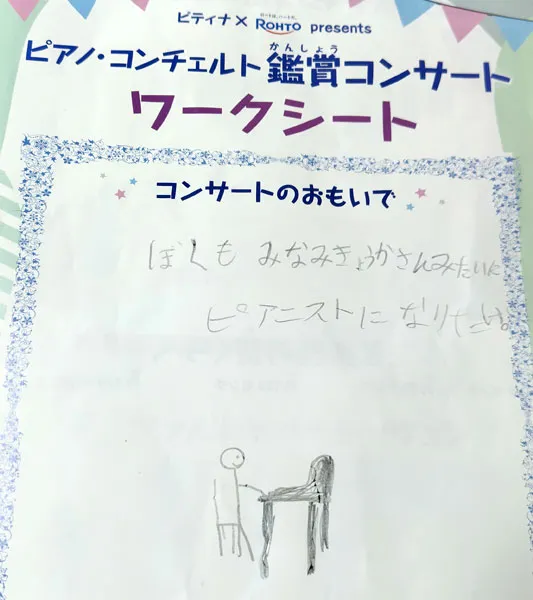 ピティナ× ROHTO presents
かんしょう
ピアノ・コンチェルト鑑賞コンサート
ワークシート
コンサートのおもいで
ぼくも みなみきょうかさんみたいに
ピアニストになりたい